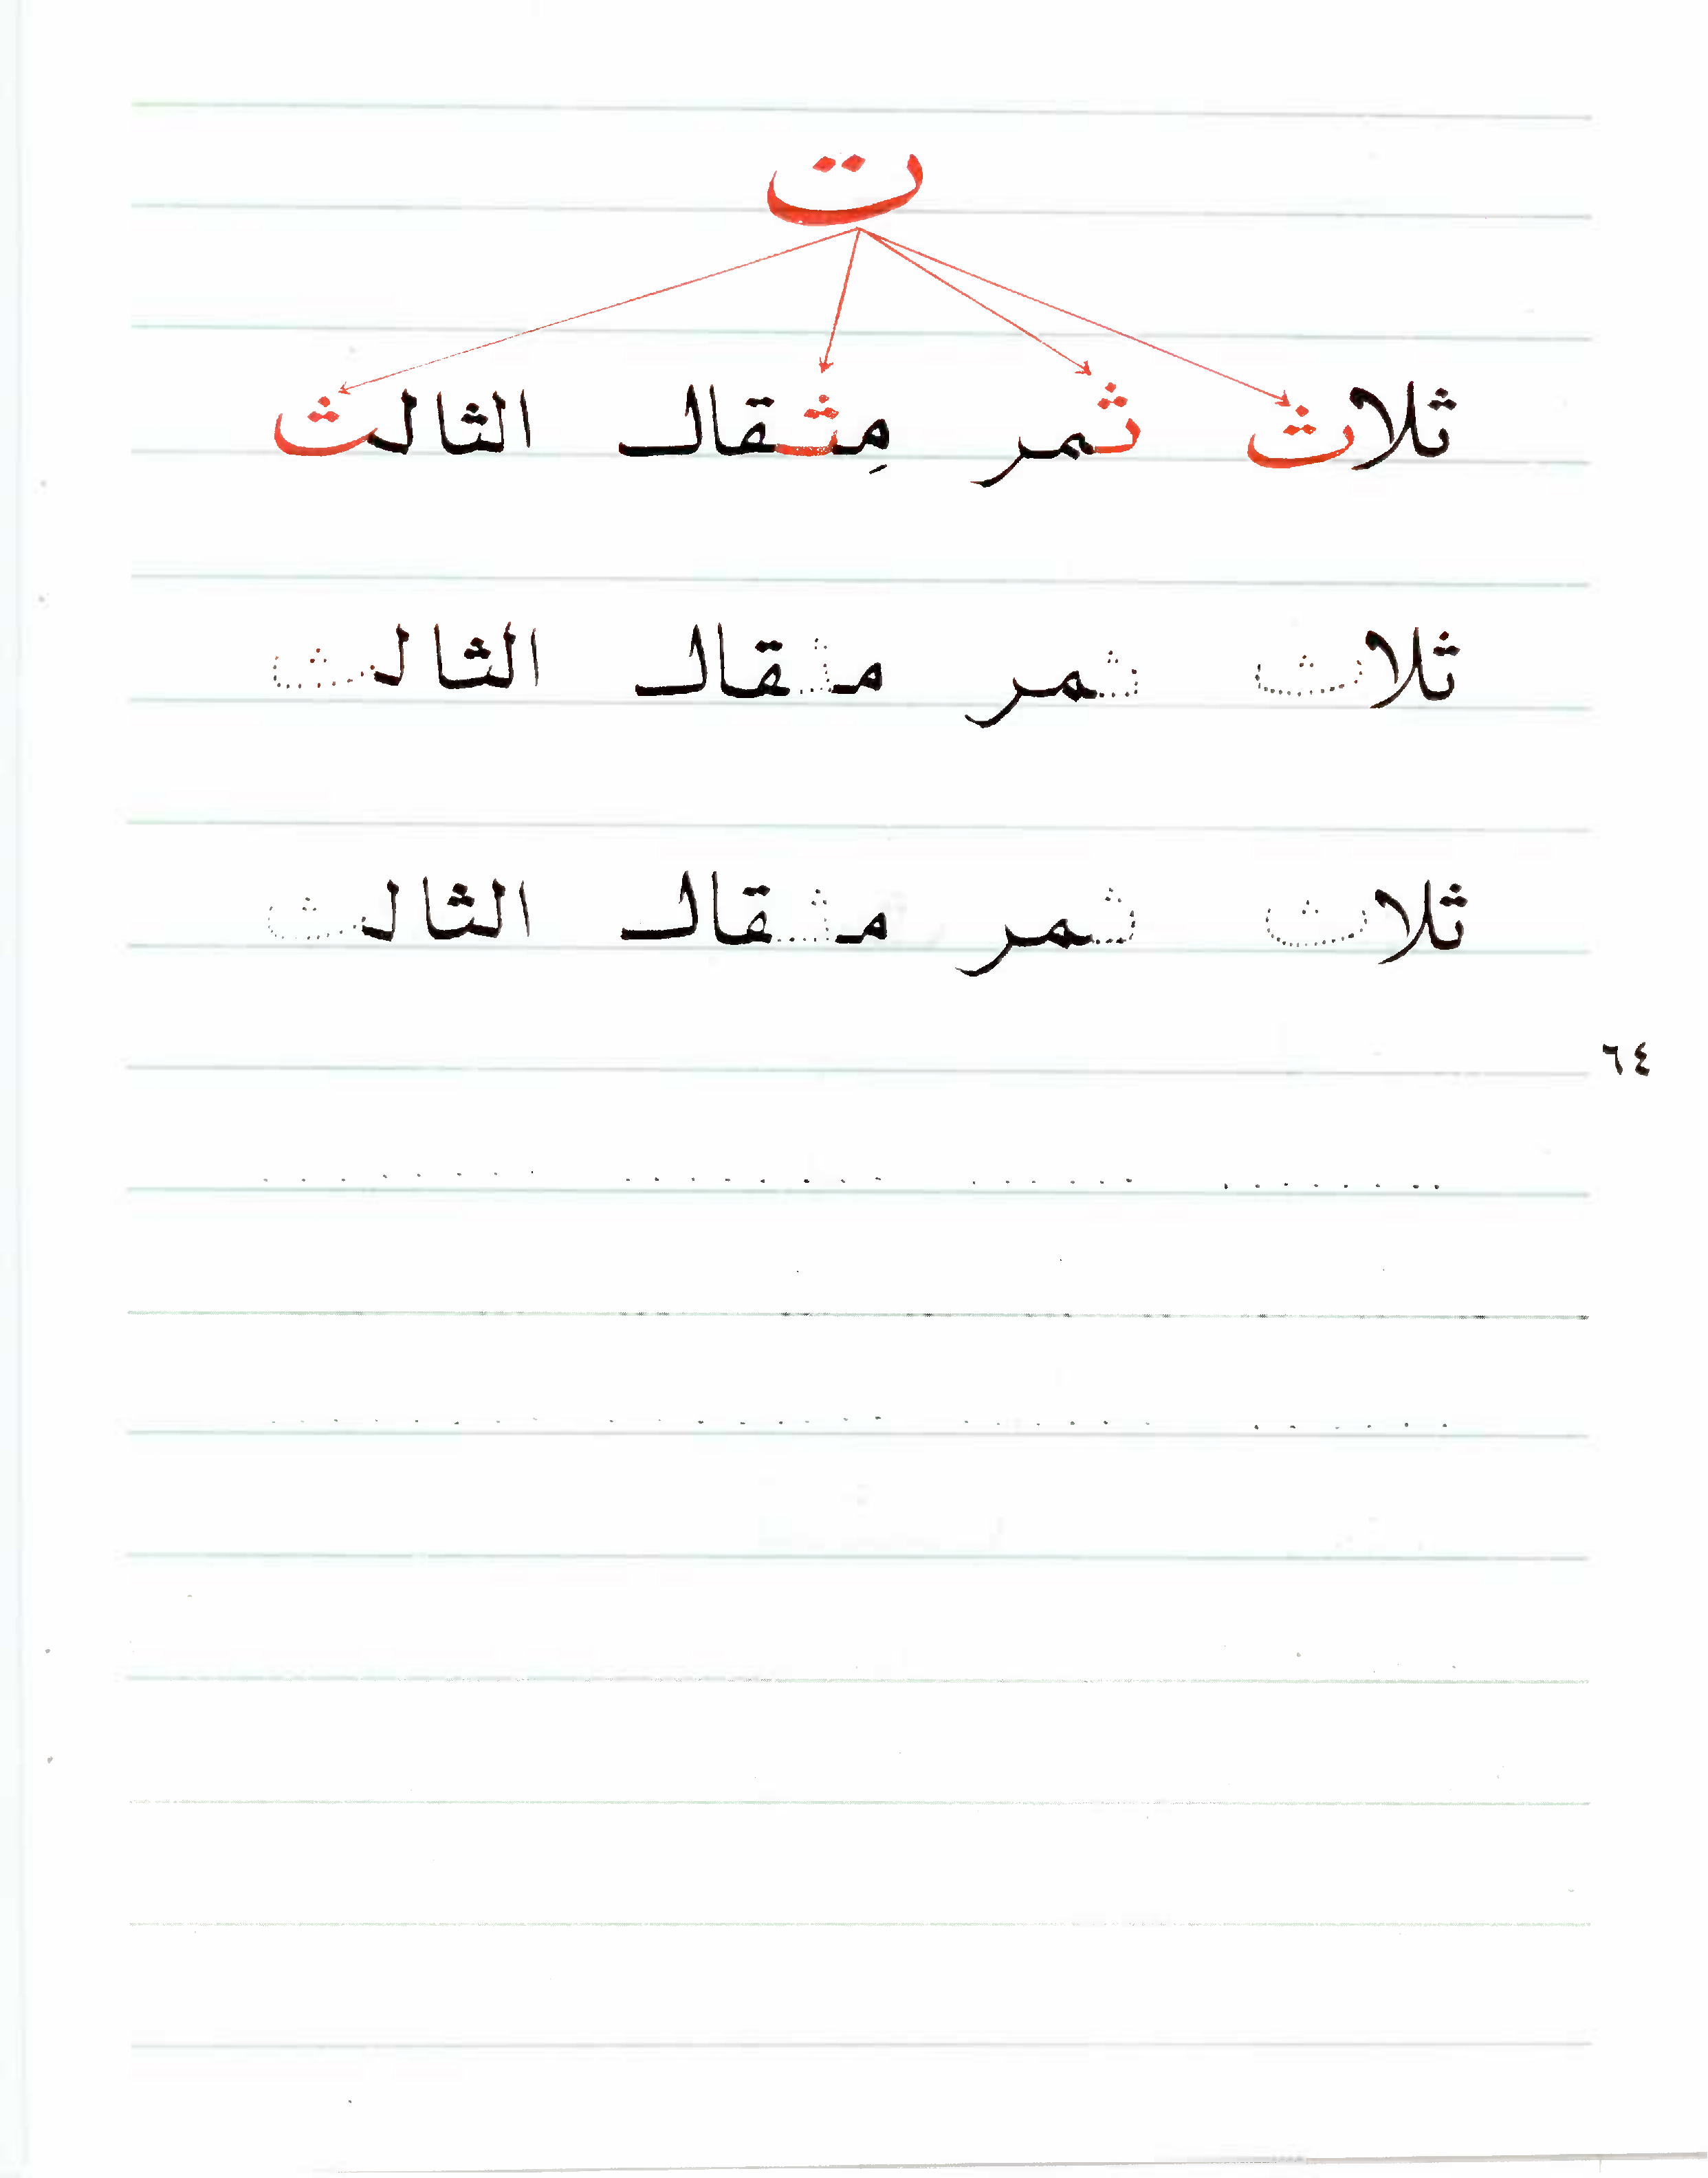 ت
ثلاث ثمر مِثقال الثالث
ثلاث ثمر مثقال الثالث
ثلاث ثمر مثقال الثالث
٦٤